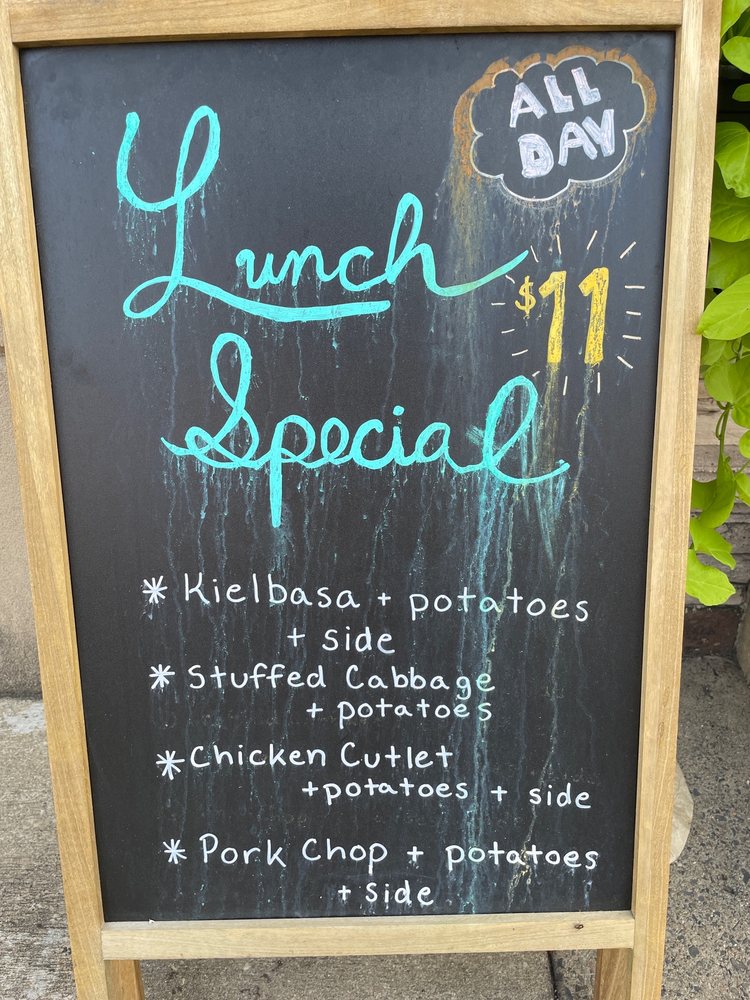 ALL
DAY
Lunch
$11
Special
* Kielbasa + potatoes
+ side
* Stuffed Cabbage
+ potatoes
* Chicken Cutlet
+potatoes + side
* Pork Chop + potatoes
+ side